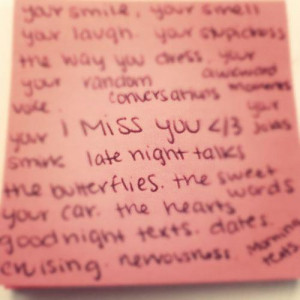 your smile, your smell
your laugh. your stupidness
the way you dress. your
your random awkward
voice. conversations moments
your I MISS YOU </3 your
smirk late night talks jokes
the butterflies. the sweet
your car. the hearts words
goodnight texts. dates.
cruising. nervousness. Morning
texts.